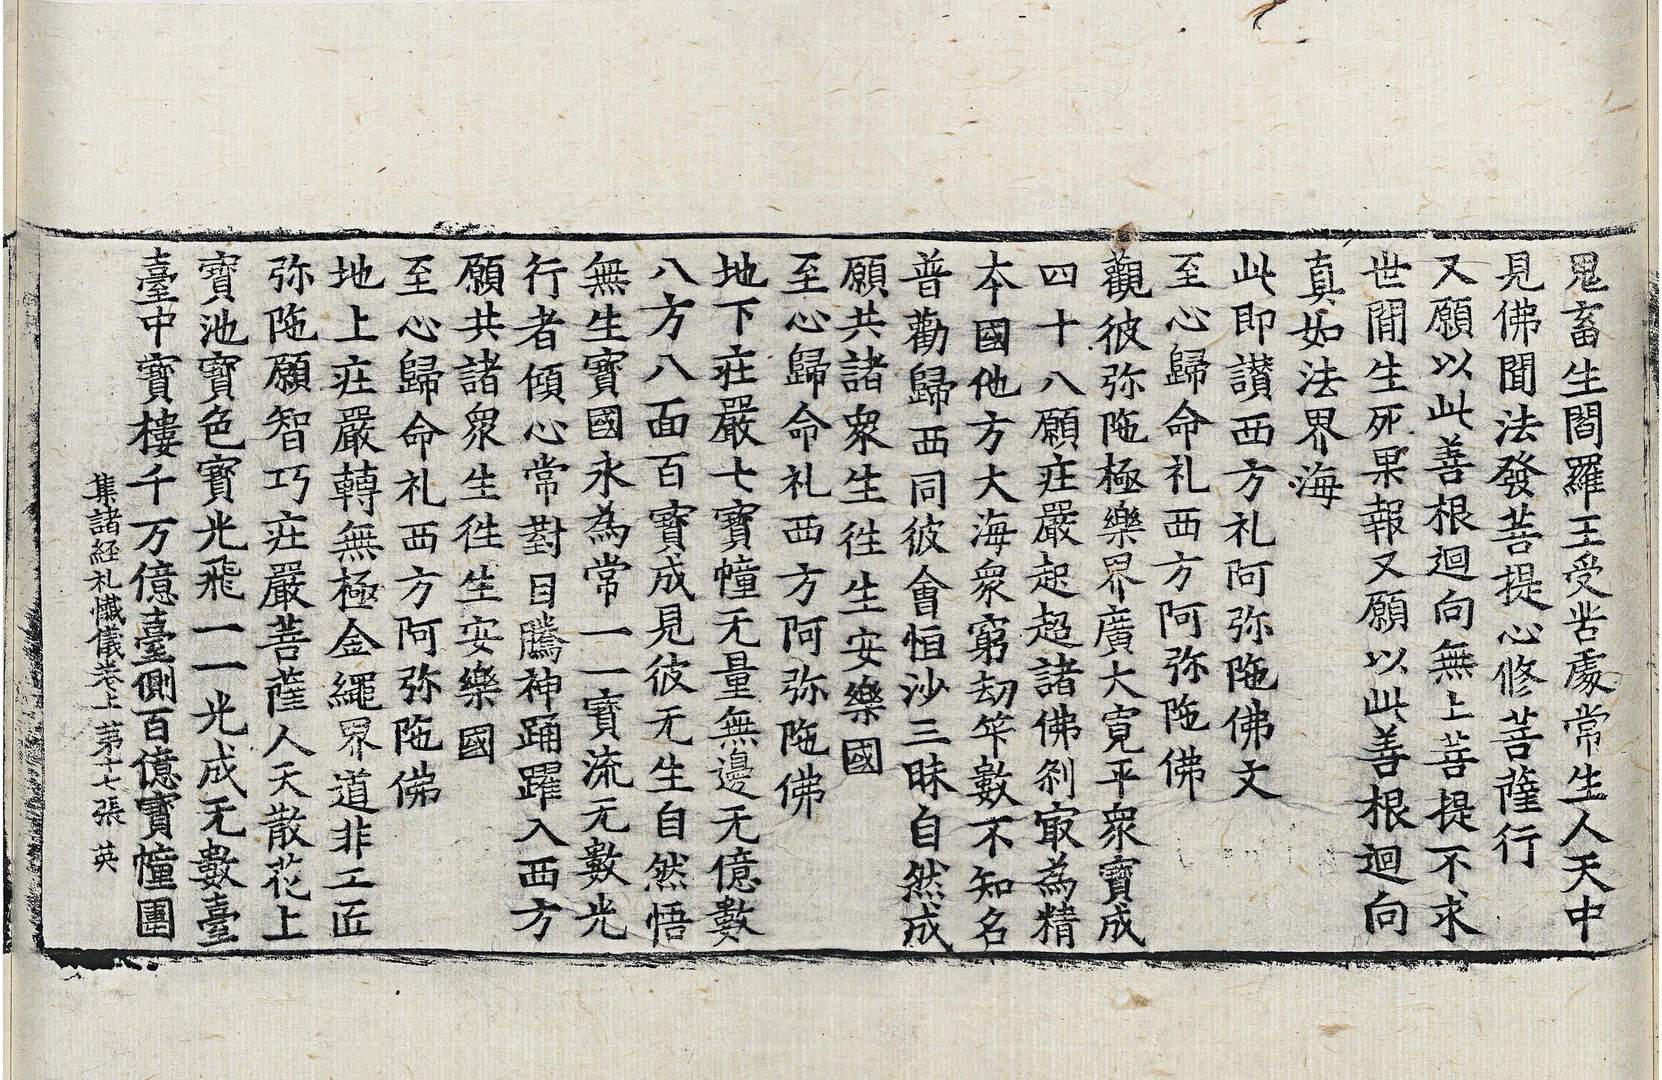 鬼畜生閻羅王受苦處常生人天中
見佛聞法發菩提心修菩薩行
又願以此善根迴向無上菩提不求
世間生死果報又願以此善根迴向
真如法界海
此即讃西方礼阿弥陁佛文
至心歸命礼西方阿弥陁佛
觀彼弥陁極樂界廣大寛平衆寶成
四十八願庄嚴起超諸佛刹㝡為精
本國他方大海衆窮劫筭數不知名
普勸歸西同彼會恒沙三昧自然成
願共諸衆生徃生安樂國
至心歸命礼西方阿弥陁佛
地下庄嚴七寶幢无量無邊无億數
八方八面百寶成見彼无生自然悟
無生寶國永為常一一寶流无數光
行者傾心常對目騰神踊躍入西方
願共諸衆生徃生安樂國
至心歸命礼西方阿弥陁佛
地上庄嚴轉無極金繩界道非工匠
弥陁願智巧庄嚴菩薩人天散花上
寶池寶色寶光飛一一光成无數臺
臺中寶樓千万億臺側百億寶幢圍
集諸經礼懺儀卷上 苐十七張 英